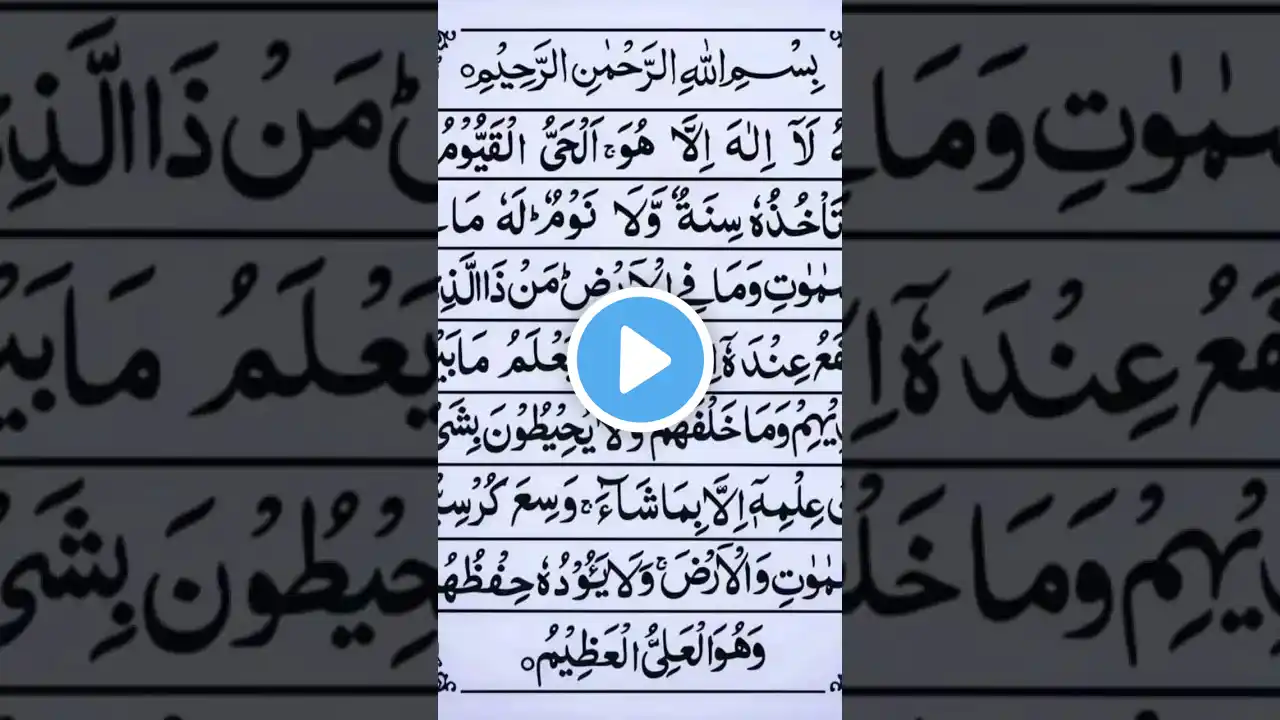 بِسْمِ اللهِ الرَّحْمٰنِ الرَّحِيْمِ
لَآ اِلٰهَ اِلَّا هُوَ ۚ اَلْحَيُّ الْقَيُّوْمُ
تَاْخُذُهٗ سِنَةٌ وَّلَا نَوْمٌ ؕ لَهٗ مَا
مٰوٰتِ وَمَا فِي الْاَرْضِ ؕ مَنْ ذَا الَّذِ
فَعُ عِنْدَهٗٓ يَعْلَمُ مَا بَيْ
دِيْهِمْ وَمَا خَلْفَهُمْ وَلَا يُحِيْطُوْنَ بِشَيْ
عِلْمِهٖٓ اِلَّا بِمَا شَآءَ ۚ وَسِعَ كُرْسِيُّ
مٰوٰتِ وَالْاَرْضَ ۚ وَلَا يَـُٔوْدُهٗ حِفْظُهُ
وَهُوَ الْعَلِيُّ الْعَظِيْمُ